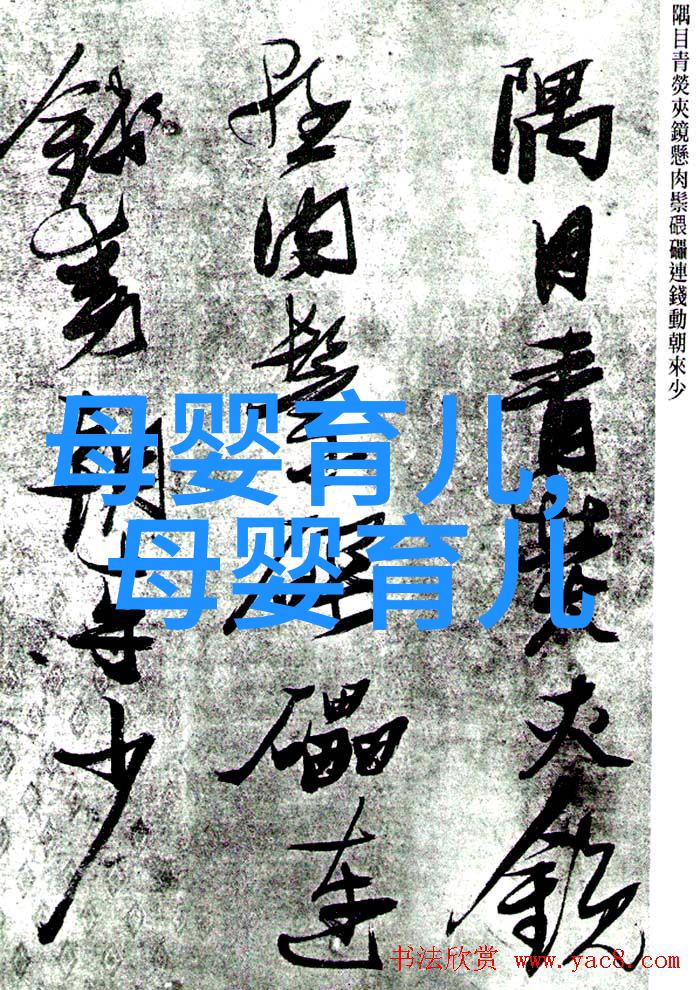 隅目青熒夾鏡懸肉鬃碨礧連錢動朝來少
隅目青熒夾鏡
懸肉鬃碨礧連
錢動朝来少
母婴育儿,
母婴育儿
书法欣赏 www.yac8.com